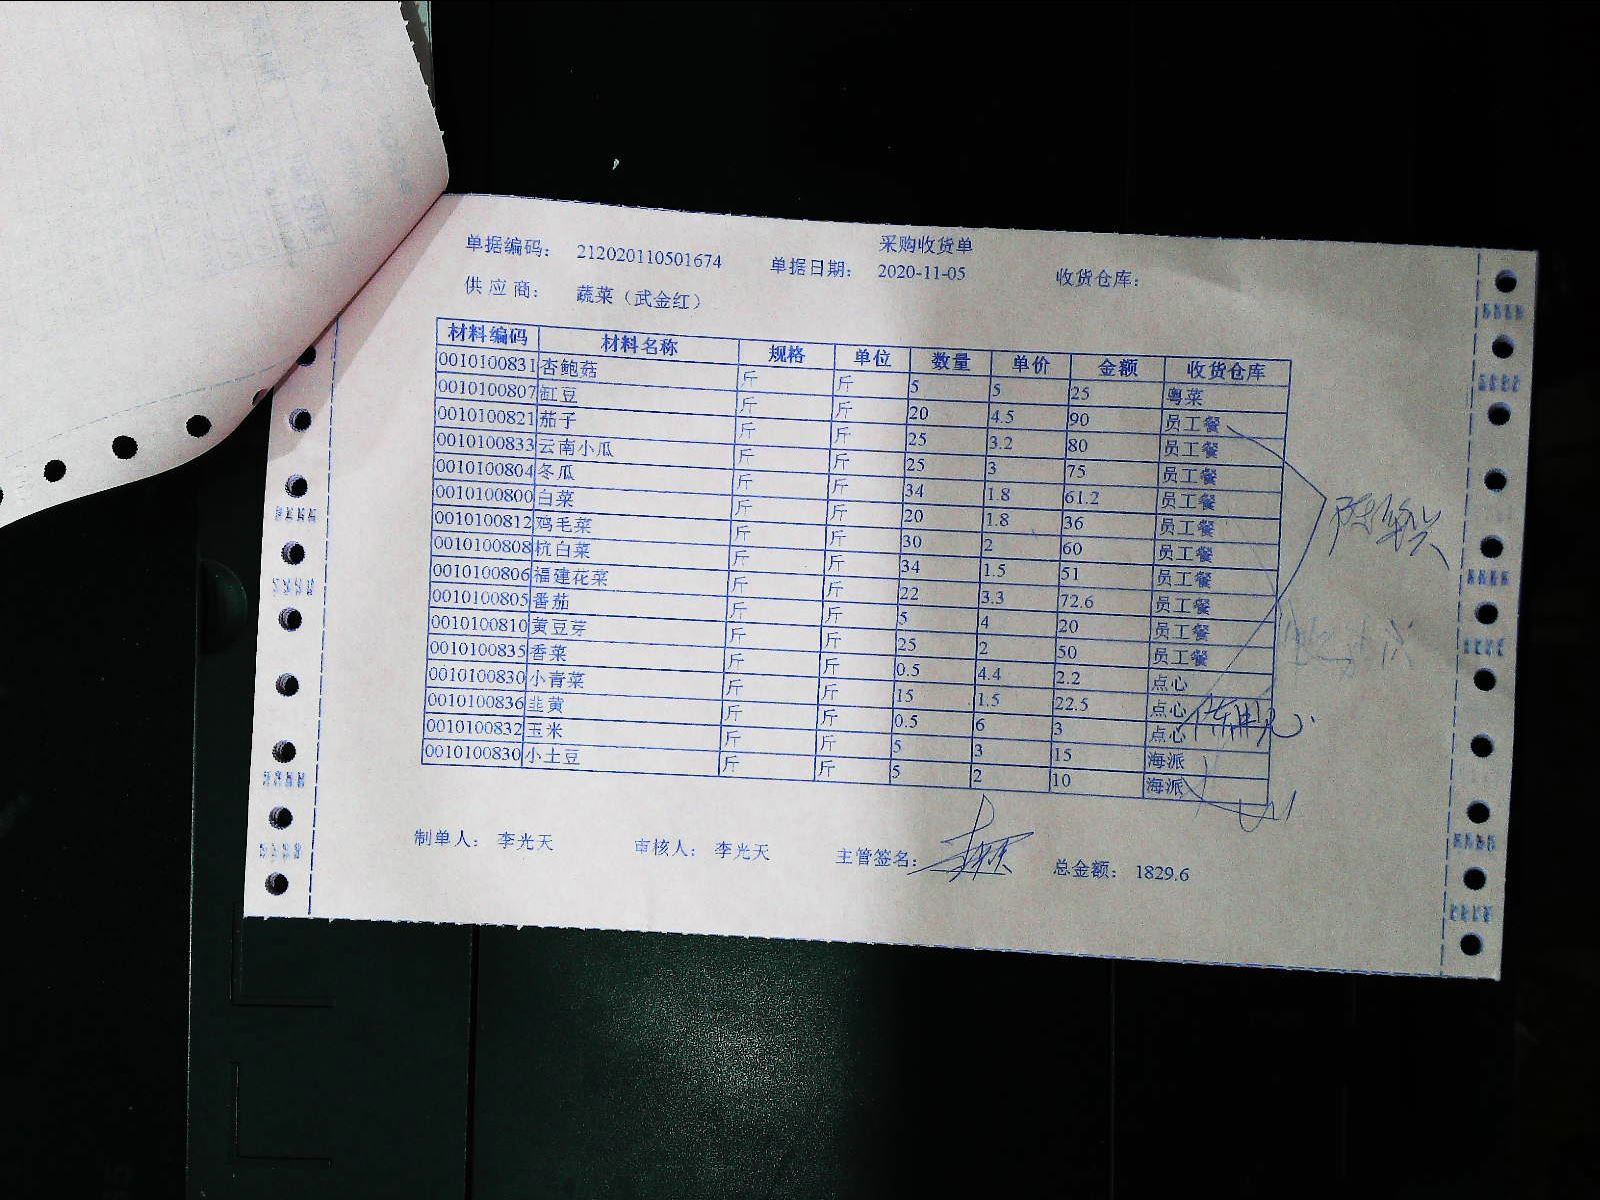 采购收货单
单据编码: 212020110501674 单据日期: 2020-11-05 收货仓库:
供应商: 蔬菜（武金红）
材料编码 材料名称 规格 单位 数量 单价 金额 收货仓库
0010100831 杏鲍菇 斤 斤 5 5 25 粤菜
0010100807 缸豆 斤 斤 20 4.5 90 员工餐
0010100821 茄子 斤 斤 25 3.2 80 员工餐
0010100833 云南小瓜 斤 斤 25 3 75 员工餐
0010100804 冬瓜 斤 斤 34 1.8 61.2 员工餐
0010100800 白菜 斤 斤 20 1.8 36 员工餐
0010100812 鸡毛菜 斤 斤 30 2 60 员工餐
0010100808 杭白菜 斤 斤 34 1.5 51 员工餐
0010100806 福建花菜 斤 斤 22 3.3 72.6 员工餐
0010100805 番茄 斤 斤 5 4 20 员工餐
0010100810 黄豆芽 斤 斤 25 2 50 员工餐
0010100835 香菜 斤 斤 0.5 4.4 2.2 点心
0010100830 小青菜 斤 斤 15 1.5 22.5 点心
0010100836 韭黄 斤 斤 0.5 6 3 点心
0010100832 玉米 斤 斤 5 3 15 海派
0010100830 小土豆 斤 斤 5 2 10 海派
制单人: 李光天 审核人: 李光天 主管签名: 总金额: 1829.6